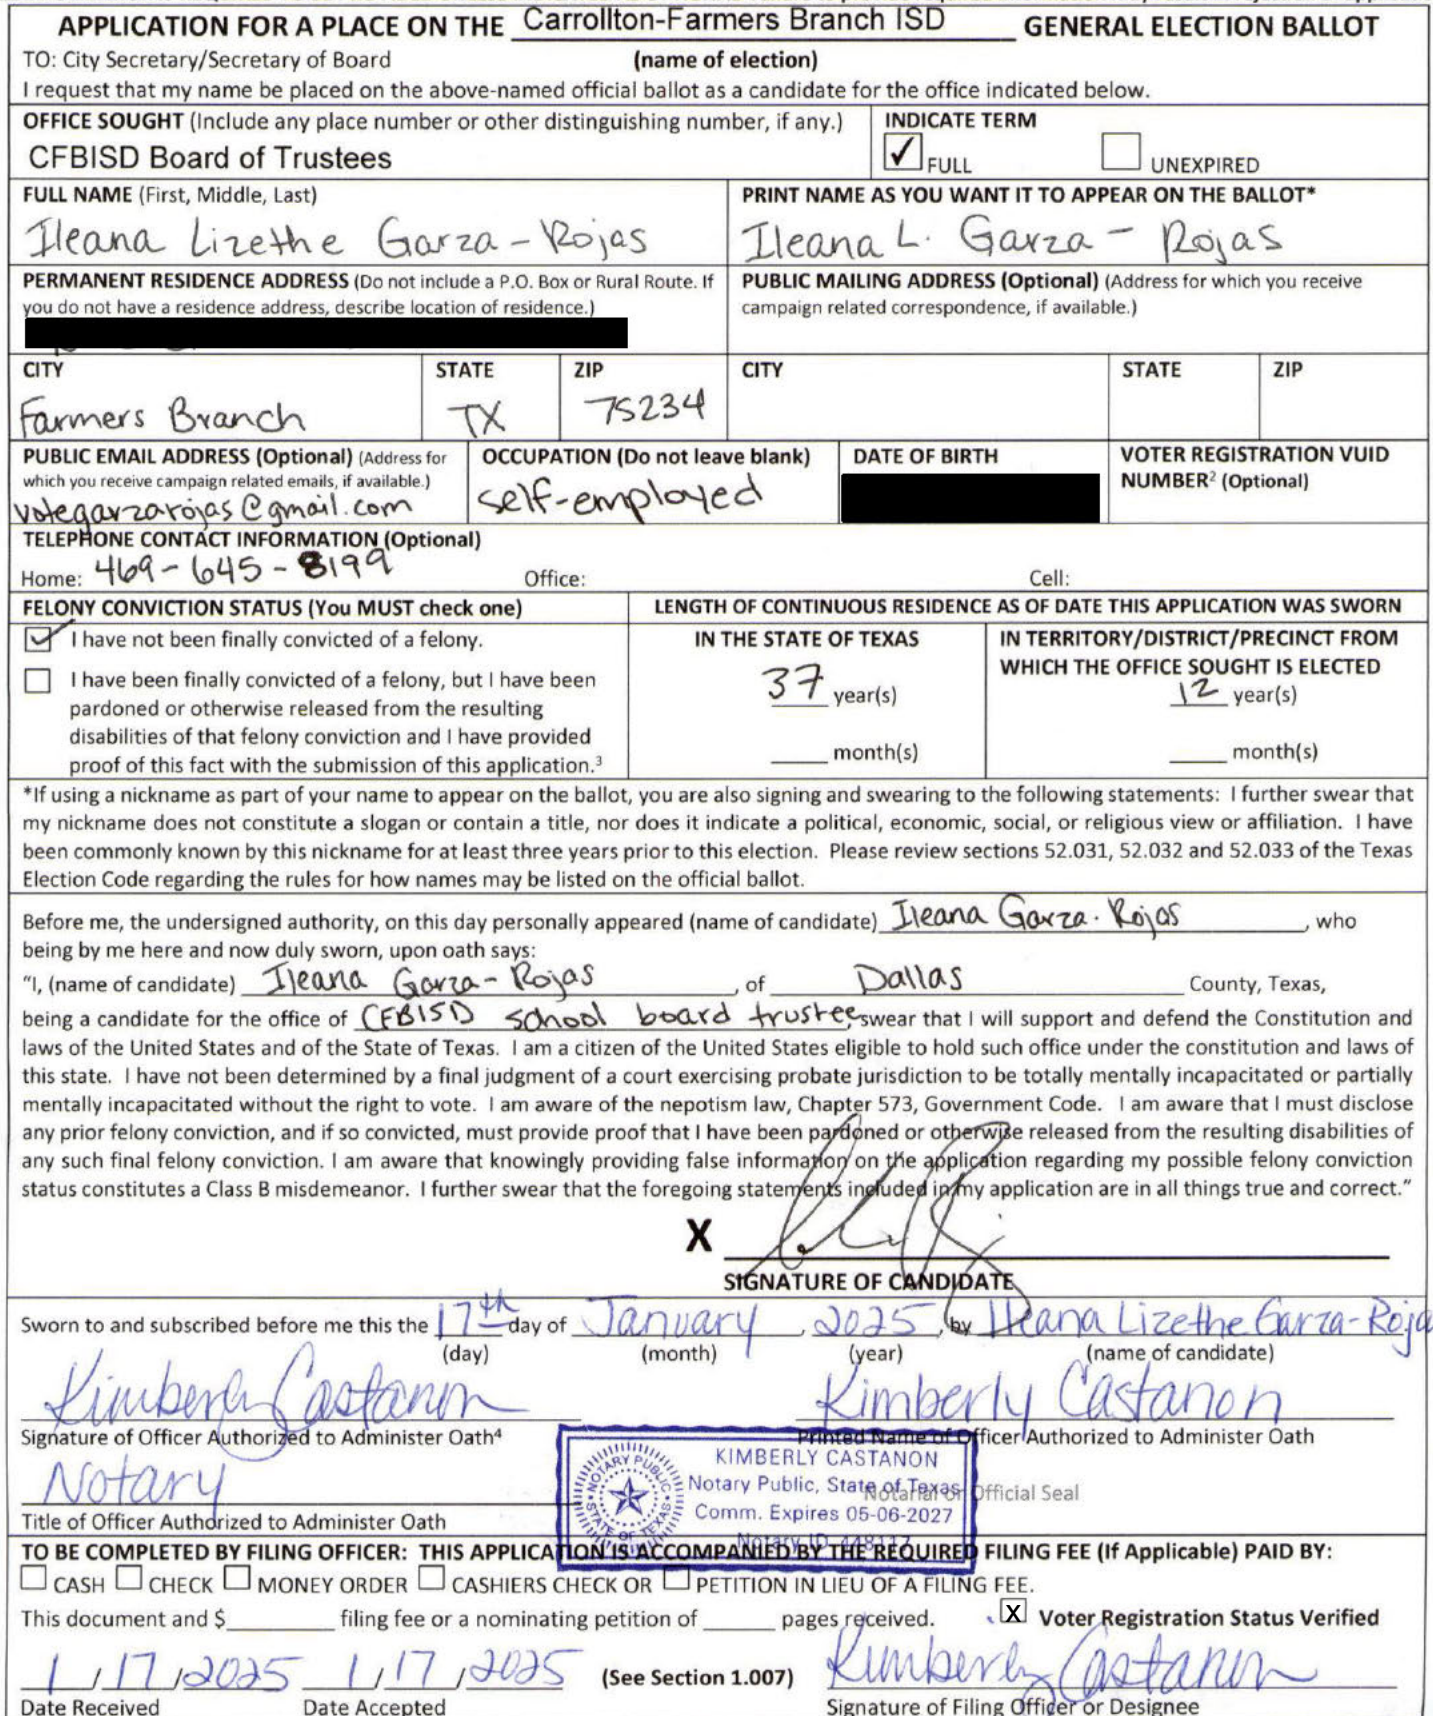 APPLICATION FOR A PLACE ON THE Carrollton-Farmers Branch ISD GENERAL ELECTION BALLOT
TO: City Secretary/Secretary of Board (name of election)
I request that my name be placed on the above-named official ballot as a candidate for the office indicated below.
OFFICE SOUGHT (Include any place number or other distinguishing number, if any.)
CFBISD Board of Trustees
INDICATE TERM
✓ FULL UNEXPIRED
FULL NAME (First, Middle, Last)
Ileana Lizethe Garza-Rojas
PRINT NAME AS YOU WANT IT TO APPEAR ON THE BALLOT*
Ileana L. Garza-Rojas
PERMANENT RESIDENCE ADDRESS (Do not include a P.O. Box or Rural Route. If
you do not have a residence address, describe location of residence.)
PUBLIC MAILING ADDRESS (Optional) (Address for which you receive
campaign related correspondence, if available.)
CITY STATE ZIP CITY STATE ZIP
Farmers Branch TX 75234
PUBLIC EMAIL ADDRESS (Optional) (Address for
which you receive campaign related emails, if available.)
votegarzarojas@gmail.com
OCCUPATION (Do not leave blank)
self-employed
DATE OF BIRTH
VOTER REGISTRATION VUID
NUMBER² (Optional)
TELEPHONE CONTACT INFORMATION (Optional)
Home: 469-645-8199 Office: Cell:
FELONY CONVICTION STATUS (You MUST check one)
✓ I have not been finally convicted of a felony.
I have been finally convicted of a felony, but I have been
pardoned or otherwise released from the resulting
disabilities of that felony conviction and I have provided
proof of this fact with the submission of this application.³
LENGTH OF CONTINUOUS RESIDENCE AS OF DATE THIS APPLICATION WAS SWORN
IN THE STATE OF TEXAS
37 year(s)
month(s)
IN TERRITORY/DISTRICT/PRECINCT FROM
WHICH THE OFFICE SOUGHT IS ELECTED
12 year(s)
month(s)
*If using a nickname as part of your name to appear on the ballot, you are also signing and swearing to the following statements: I further swear that
my nickname does not constitute a slogan or contain a title, nor does it indicate a political, economic, social, or religious view or affiliation. I have
been commonly known by this nickname for at least three years prior to this election. Please review sections 52.031, 52.032 and 52.033 of the Texas
Election Code regarding the rules for how names may be listed on the official ballot.
Before me, the undersigned authority, on this day personally appeared (name of candidate) Ileana Garza-Rojas, who
being by me here and now duly sworn, upon oath says:
"I, (name of candidate) Ileana Garza-Rojas, of Dallas County, Texas,
being a candidate for the office of CFBISD school board trustee, swear that I will support and defend the Constitution and
laws of the United States and of the State of Texas. I am a citizen of the United States eligible to hold such office under the constitution and laws of
this state. I have not been determined by a final judgment of a court exercising probate jurisdiction to be totally mentally incapacitated or partially
mentally incapacitated without the right to vote. I am aware of the nepotism law, Chapter 573, Government Code. I am aware that I must disclose
any prior felony conviction, and if so convicted, must provide proof that I have been pardoned or otherwise released from the resulting disabilities of
any such final felony conviction. I am aware that knowingly providing false information on the application regarding my possible felony conviction
status constitutes a Class B misdemeanor. I further swear that the foregoing statements included in my application are in all things true and correct."
X
SIGNATURE OF CANDIDATE
Sworn to and subscribed before me this the 17th day of January, 2025, by Ileana Lizethe Garza-Roja
(day) (month) (year) (name of candidate)
Kimberly Castanon Kimberly Castanon
Signature of Officer Authorized to Administer Oath⁴ Printed Name of Officer Authorized to Administer Oath
Notary
Title of Officer Authorized to Administer Oath
Notarial or Official Seal
NOTARY PUBLIC
STATE OF TEXAS
KIMBERLY CASTANON
Notary Public, State of Texas
Comm. Expires 05-06-2027
Notary ID 448117
TO BE COMPLETED BY FILING OFFICER: THIS APPLICATION IS ACCOMPANIED BY THE REQUIRED FILING FEE (If Applicable) PAID BY:
CASH CHECK MONEY ORDER CASHIERS CHECK OR PETITION IN LIEU OF A FILING FEE.
This document and $ filing fee or a nominating petition of pages received. X Voter Registration Status Verified
1/17/2025 1/17/2025 (See Section 1.007) Kimberly Castanon
Date Received Date Accepted Signature of Filing Officer or Designee